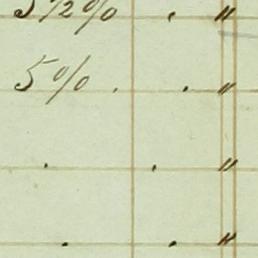 5 1/2 % . "
5 % . . "
. . "
. . "